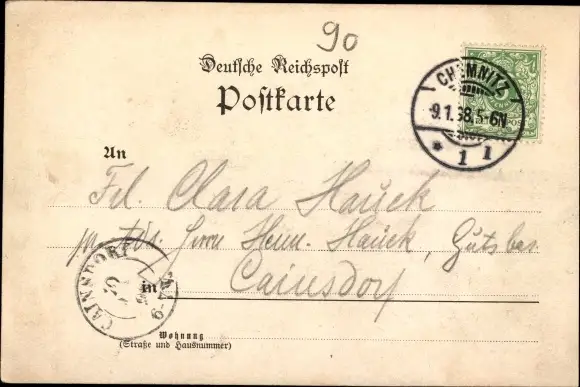 90
Deutsche Reichspost
Postkarte
CHEMNITZ
9.1.98.5-6N
* 1 1
5
An
Frl. Clara Hauck
pr. Adr. Herrn Herm. Hauck, Gutsbes.
in Cainsdorf
CAINSDORF
Wohnung
(Straße und Hausnummer)